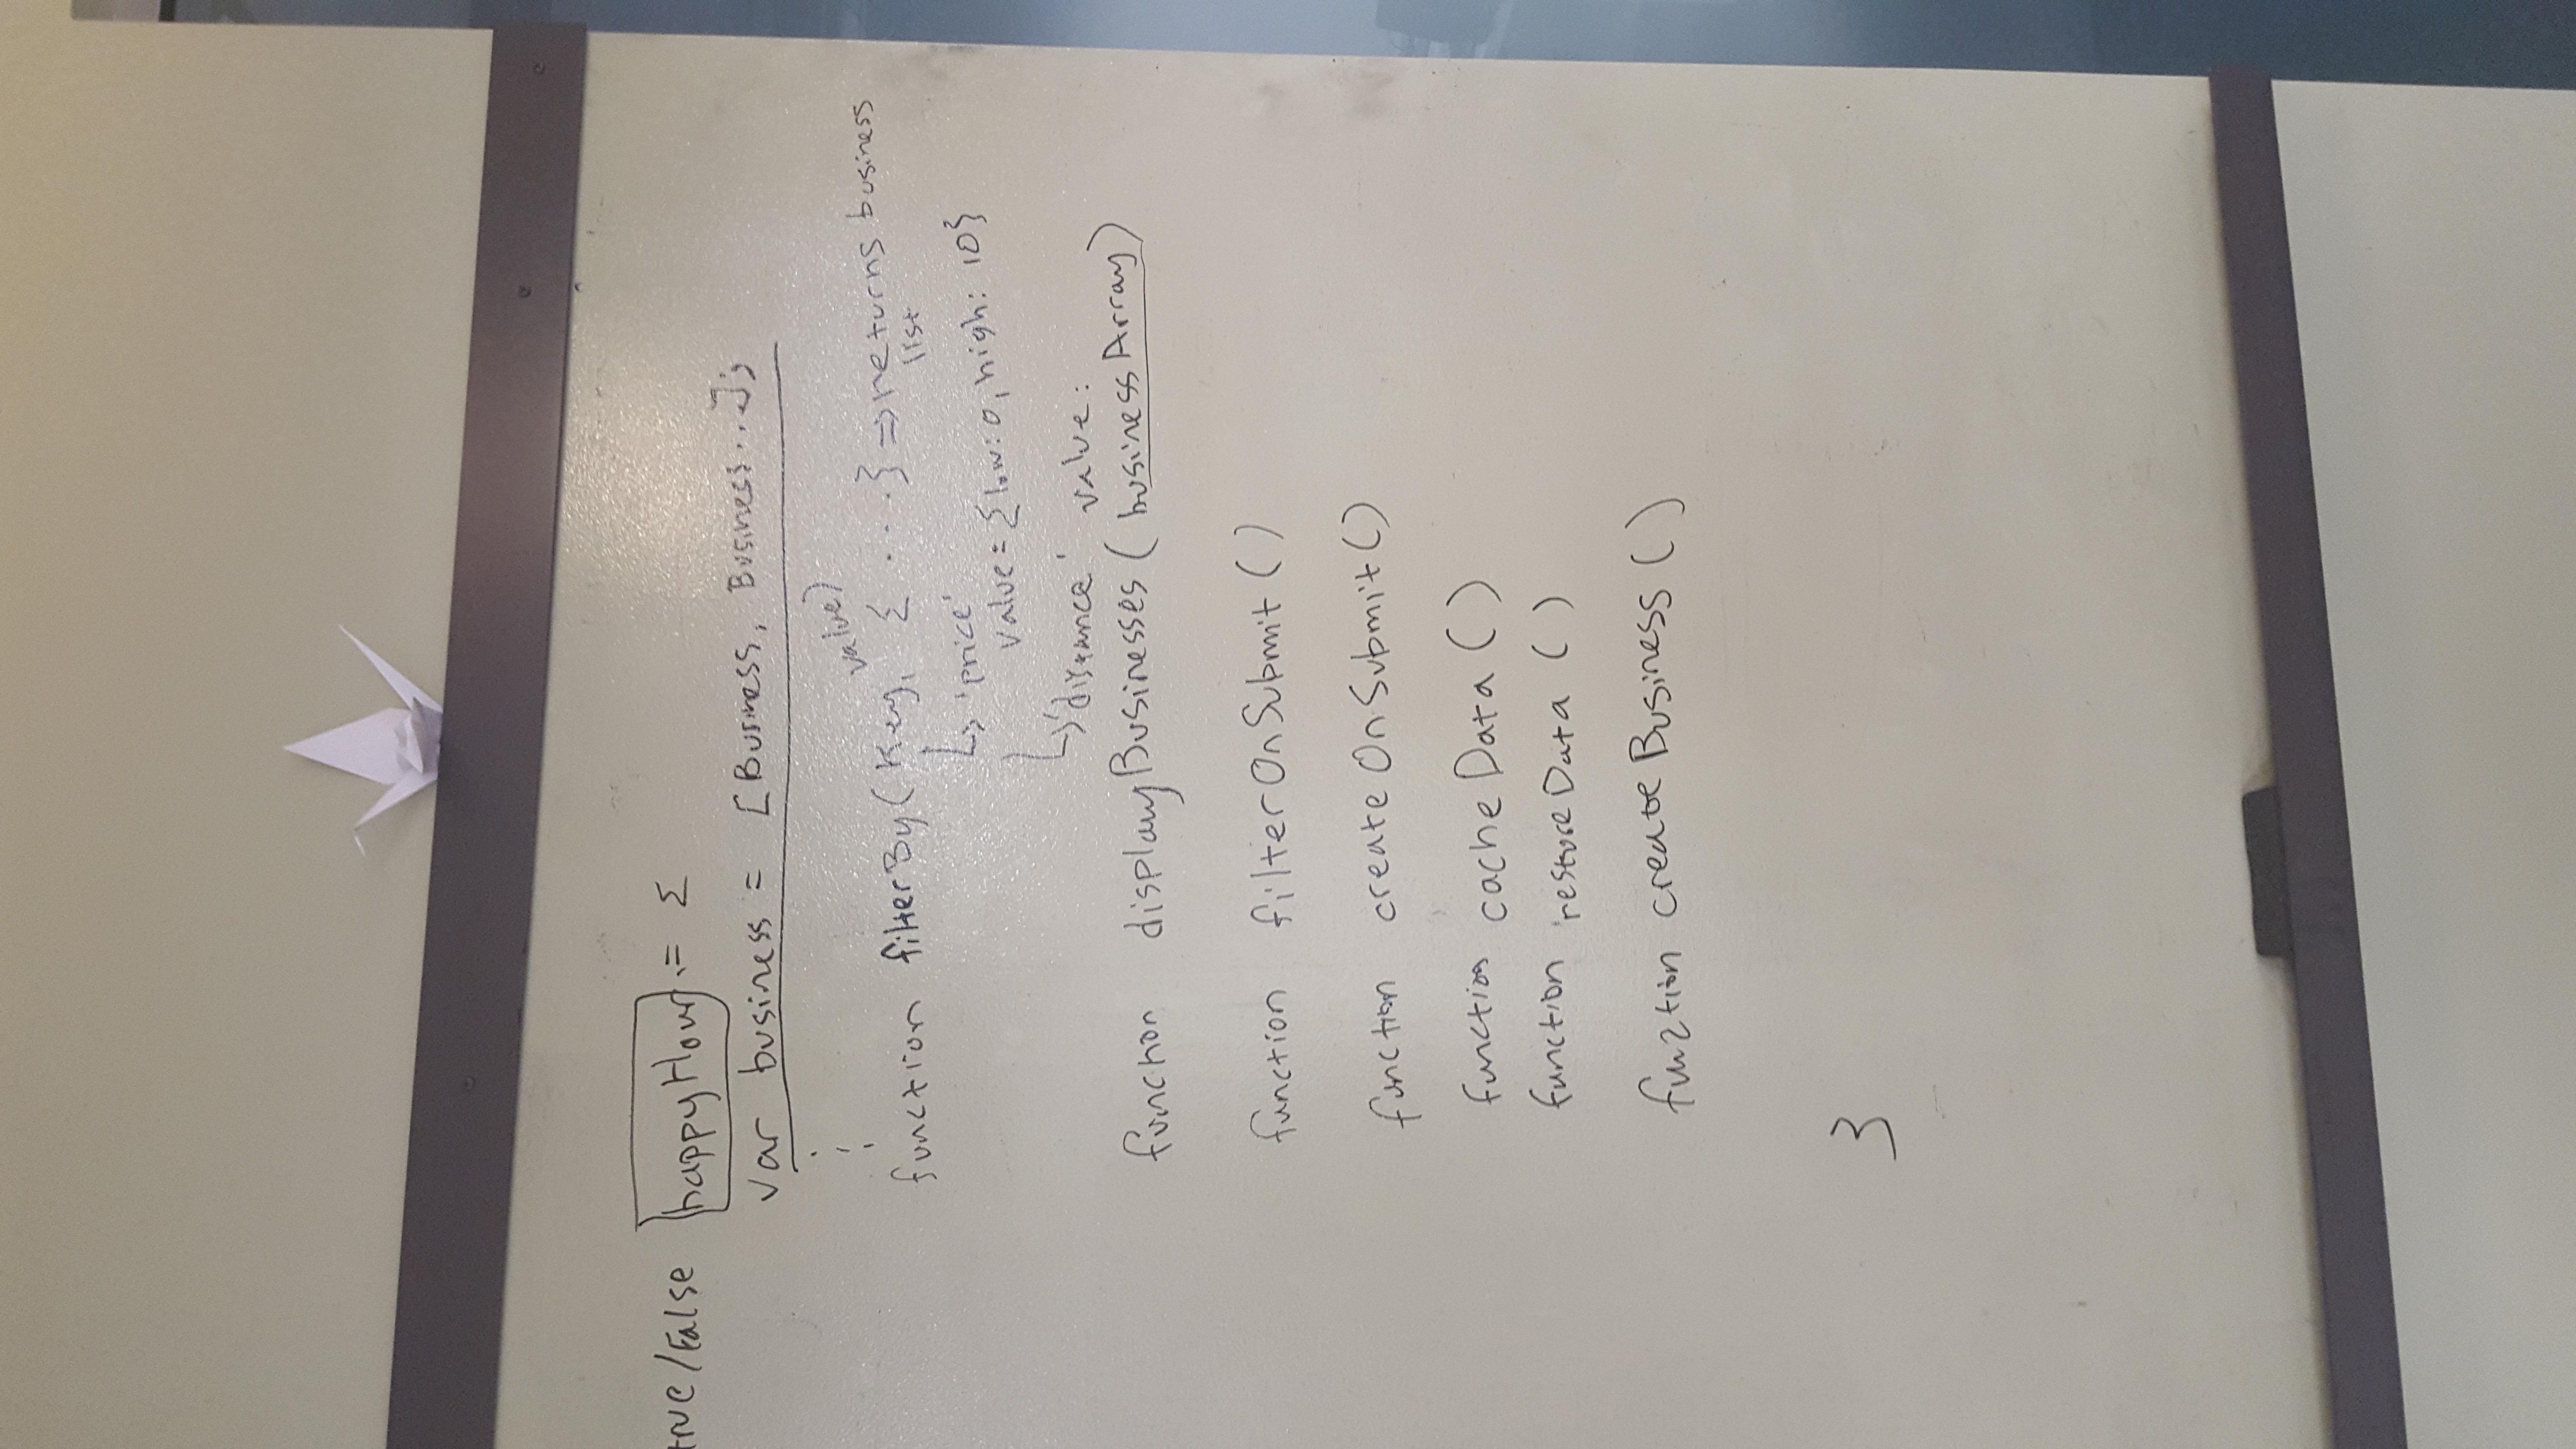 true/False happyHour = {
var business = [Business, Business...];
function filterBy(Key, value) { ....} => returns business
list
↳ 'price'
value = {low: 0, high: 10}
↳ 'distance' value:
function displayBusinesses (businessArray)
function filterOnSubmit ()
function createOnSubmit ()
function cacheData ()
function restoreData ()
function createBusiness ()
}